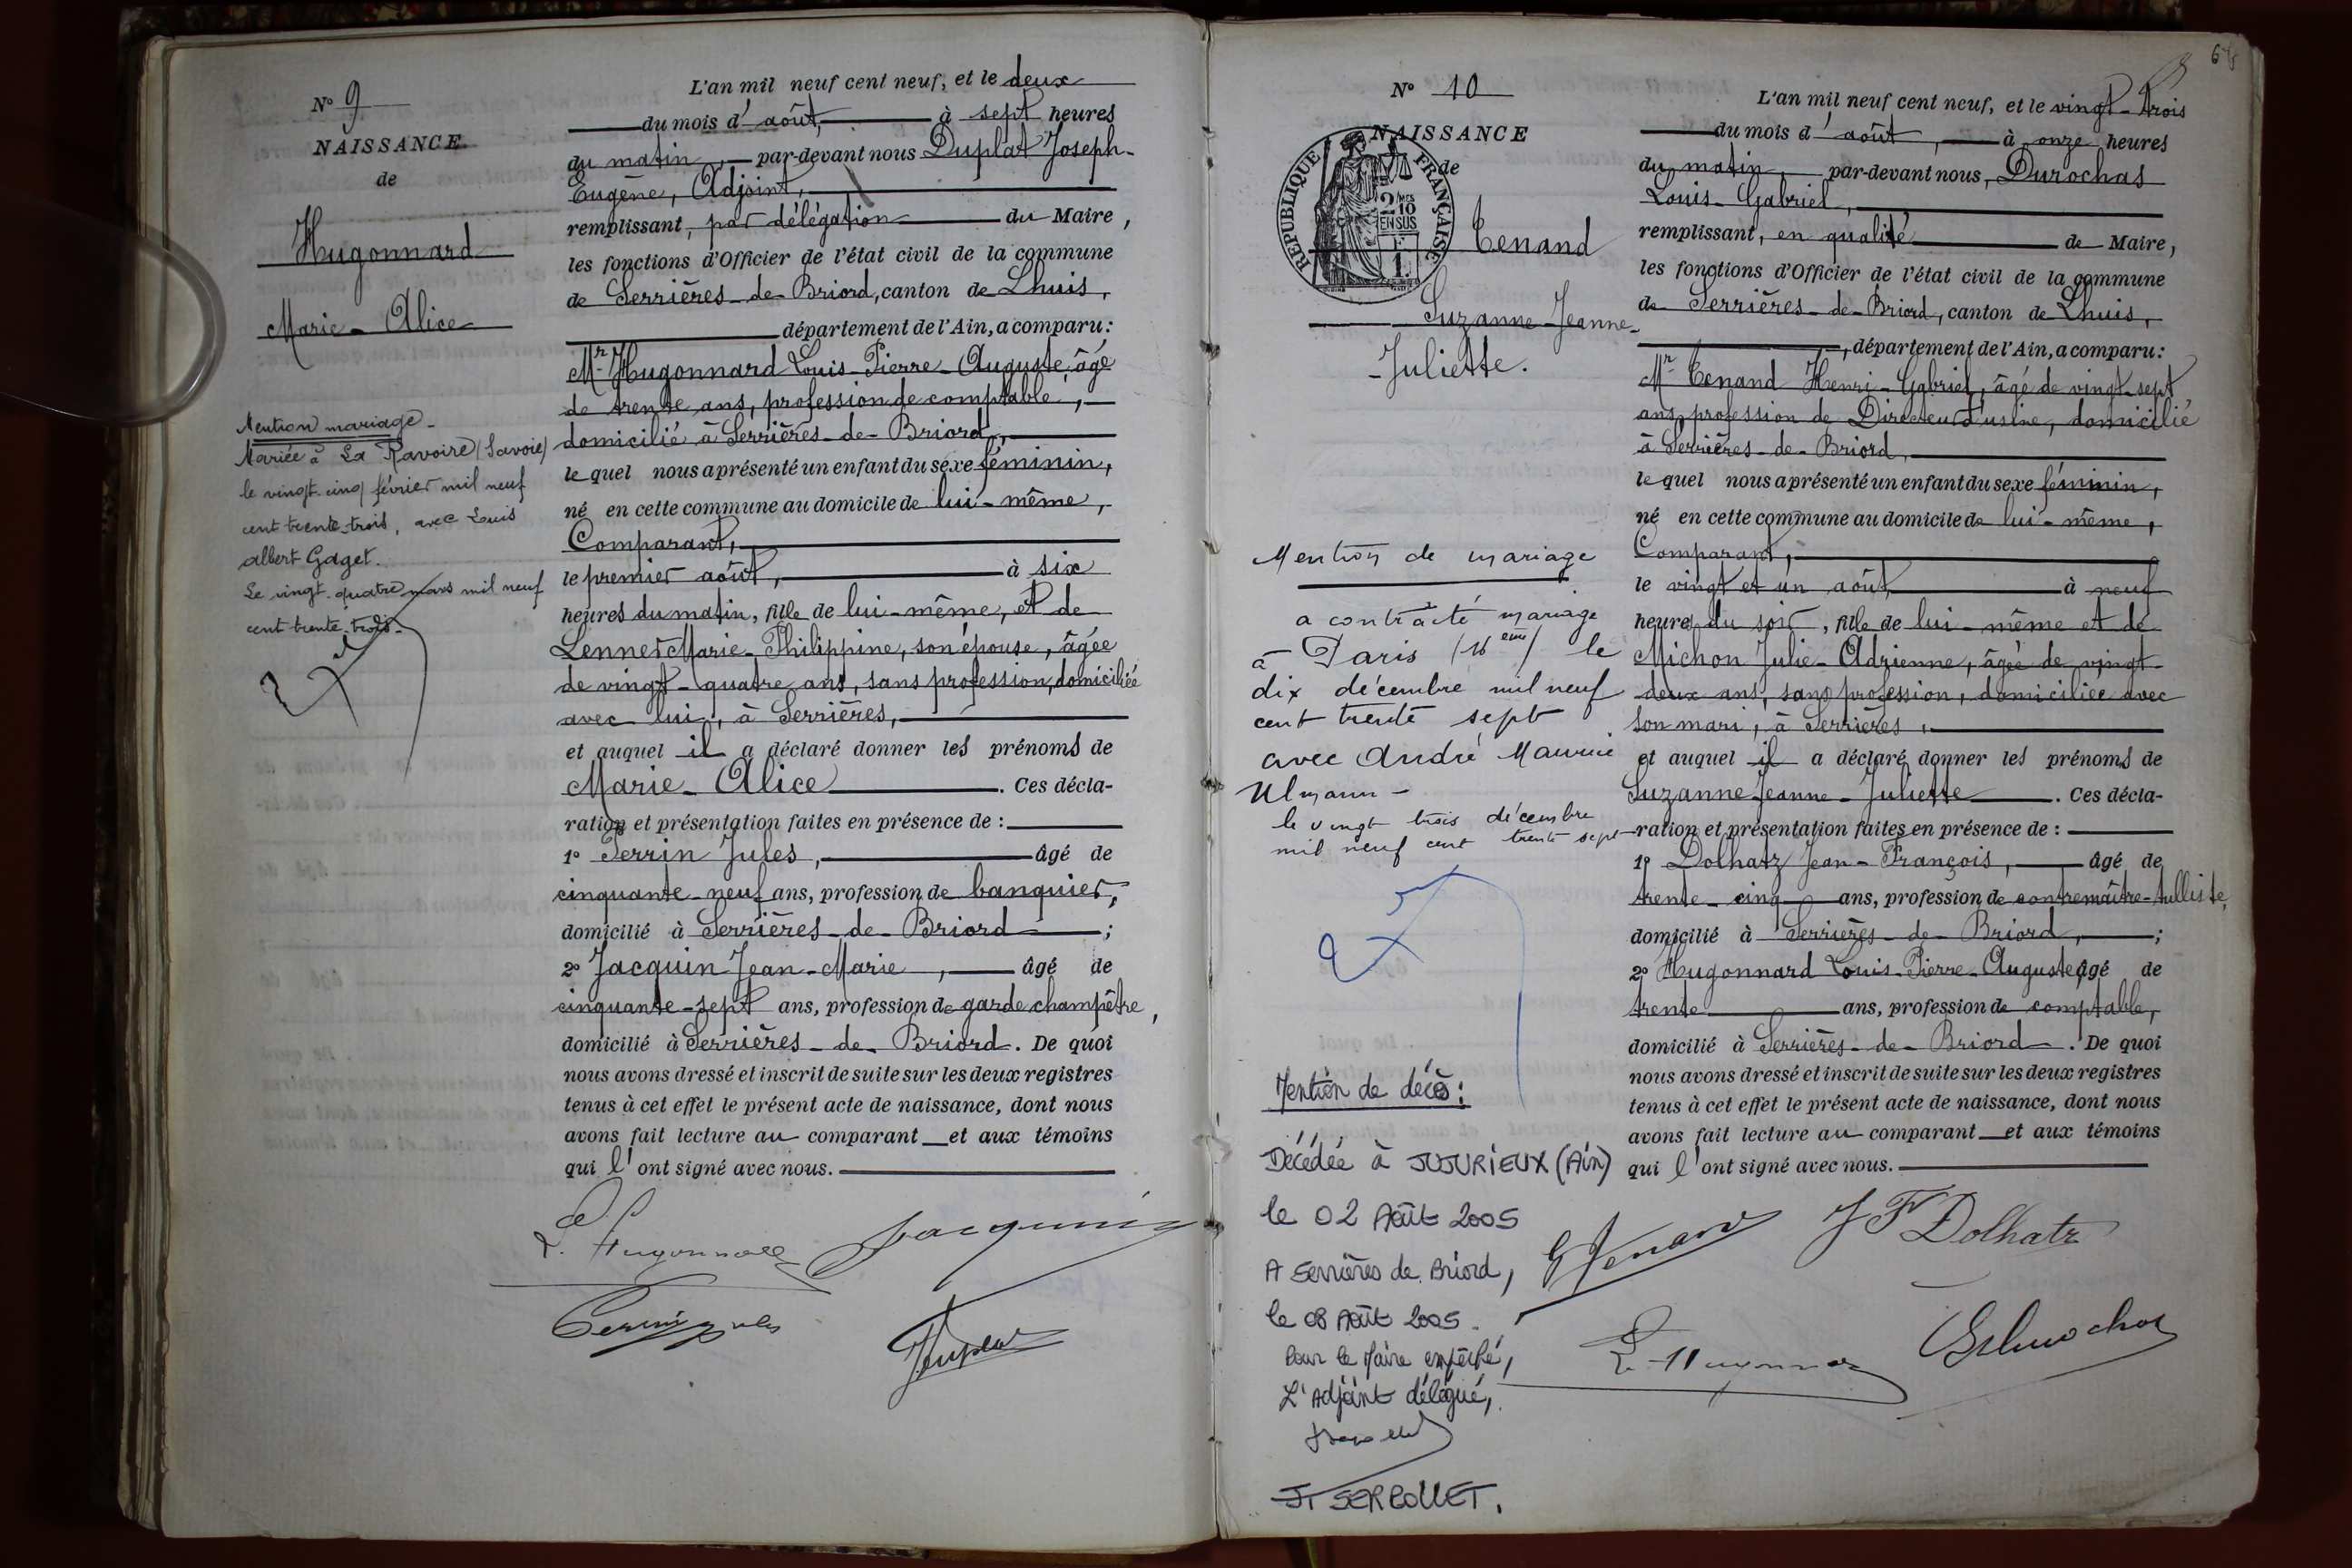 Nº 9
NAISSANCE
de
Hugonnard
Marie-Alice
Mention mariage.
Mariée à La Ravoire (Savoie)
le vingt-cinq février mil neuf
cent trente-trois, avec Louis
Albert Gaget.
Le vingt-quatre mars mil neuf
cent trente-trois.
L'an mil neuf cent neuf, et le deux
du mois d'août, à sept heures
du matin, par-devant nous Duplat Joseph-
Eugène, Adjoint,
remplissant, par délégation du Maire,
les fonctions d'Officier de l'état civil de la commune
de Serrières-de-Briord, canton de Lhuis,
département de l'Ain, a comparu:
Mr Hugonnard Louis-Pierre-Auguste, âgé
de trente ans, profession de comptable,
domicilié à Serrières-de-Briord,
lequel nous a présenté un enfant du sexe féminin,
né en cette commune au domicile de lui-même,
Comparant,
le premier août, à six
heures du matin, fille de lui-même, et de
Lenner Marie-Philippine, son épouse, âgée
de vingt-quatre ans, sans profession, domiciliée
avec lui, à Serrières,
et auquel il a déclaré donner les prénoms de
Marie-Alice. Ces décla-
ration et présentation faites en présence de :
1º Perrin Jules, âgé de
cinquante-neuf ans, profession de banquier,
domicilié à Serrières-de-Briord ;
2º Jacquin Jean-Marie, âgé de
cinquante-sept ans, profession de garde champêtre,
domicilié à Serrières-de-Briord. De quoi
nous avons dressé et inscrit de suite sur les deux registres
tenus à cet effet le présent acte de naissance, dont nous
avons fait lecture au comparant et aux témoins
qui l'ont signé avec nous.
L. Hugonnard
Jacquin
Perrin Jules
Duplat
Nº 10
NAISSANCE
de
RÉPUBLIQUE FRANÇAISE
2/10 EN SUS
Tenand
Suzanne-Jeanne-
-Juliette.
Mention de mariage
a contracté mariage
à Paris (16eme) le
dix décembre mil neuf
cent trente sept
avec André Maurice
Ulmann -
le vingt trois décembre
mil neuf cent trente sept
Mention de décès :
Décédée à JUJURIEUX (Ain)
le 02 Août 2005
A Serrières de Briord,
le 08 Août 2005.
Pour le Maire empêché,
L'Adjoint délégué,
L'an mil neuf cent neuf, et le vingt-trois
du mois d'août, à onze heures
du matin, par-devant nous, Durochas
Louis-Gabriel,
remplissant, en qualité de Maire,
les fonctions d'Officier de l'état civil de la commune
de Serrières-de-Briord, canton de Lhuis,
département de l'Ain, a comparu:
Mr Tenand Henri-Gabriel, âgé de vingt-sept
ans, profession de Directeur d'usine, domicilié
à Serrières-de-Briord,
lequel nous a présenté un enfant du sexe féminin,
né en cette commune au domicile de lui-même,
Comparant,
le vingt et un août à neuf
heures du soir, fille de lui-même et de
Michon Julie-Adrienne, âgée de vingt-
deux ans, sans profession, domiciliée avec
son mari, à Serrières,
et auquel il a déclaré donner les prénoms de
Suzanne-Jeanne-Juliette. Ces décla-
ration et présentation faites en présence de :
1º Dolhatz Jean-François, âgé de
trente-cinq ans, profession de contremaître-tulliste,
domicilié à Serrières-de-Briord, ;
2º Hugonnard Louis-Pierre-Auguste, âgé de
trente ans, profession de comptable,
domicilié à Serrières-de-Briord. De quoi
nous avons dressé et inscrit de suite sur les deux registres
tenus à cet effet le présent acte de naissance, dont nous
avons fait lecture au comparant et aux témoins
qui l'ont signé avec nous.
G Tenand
J F Dolhatz
L. Hugonnard